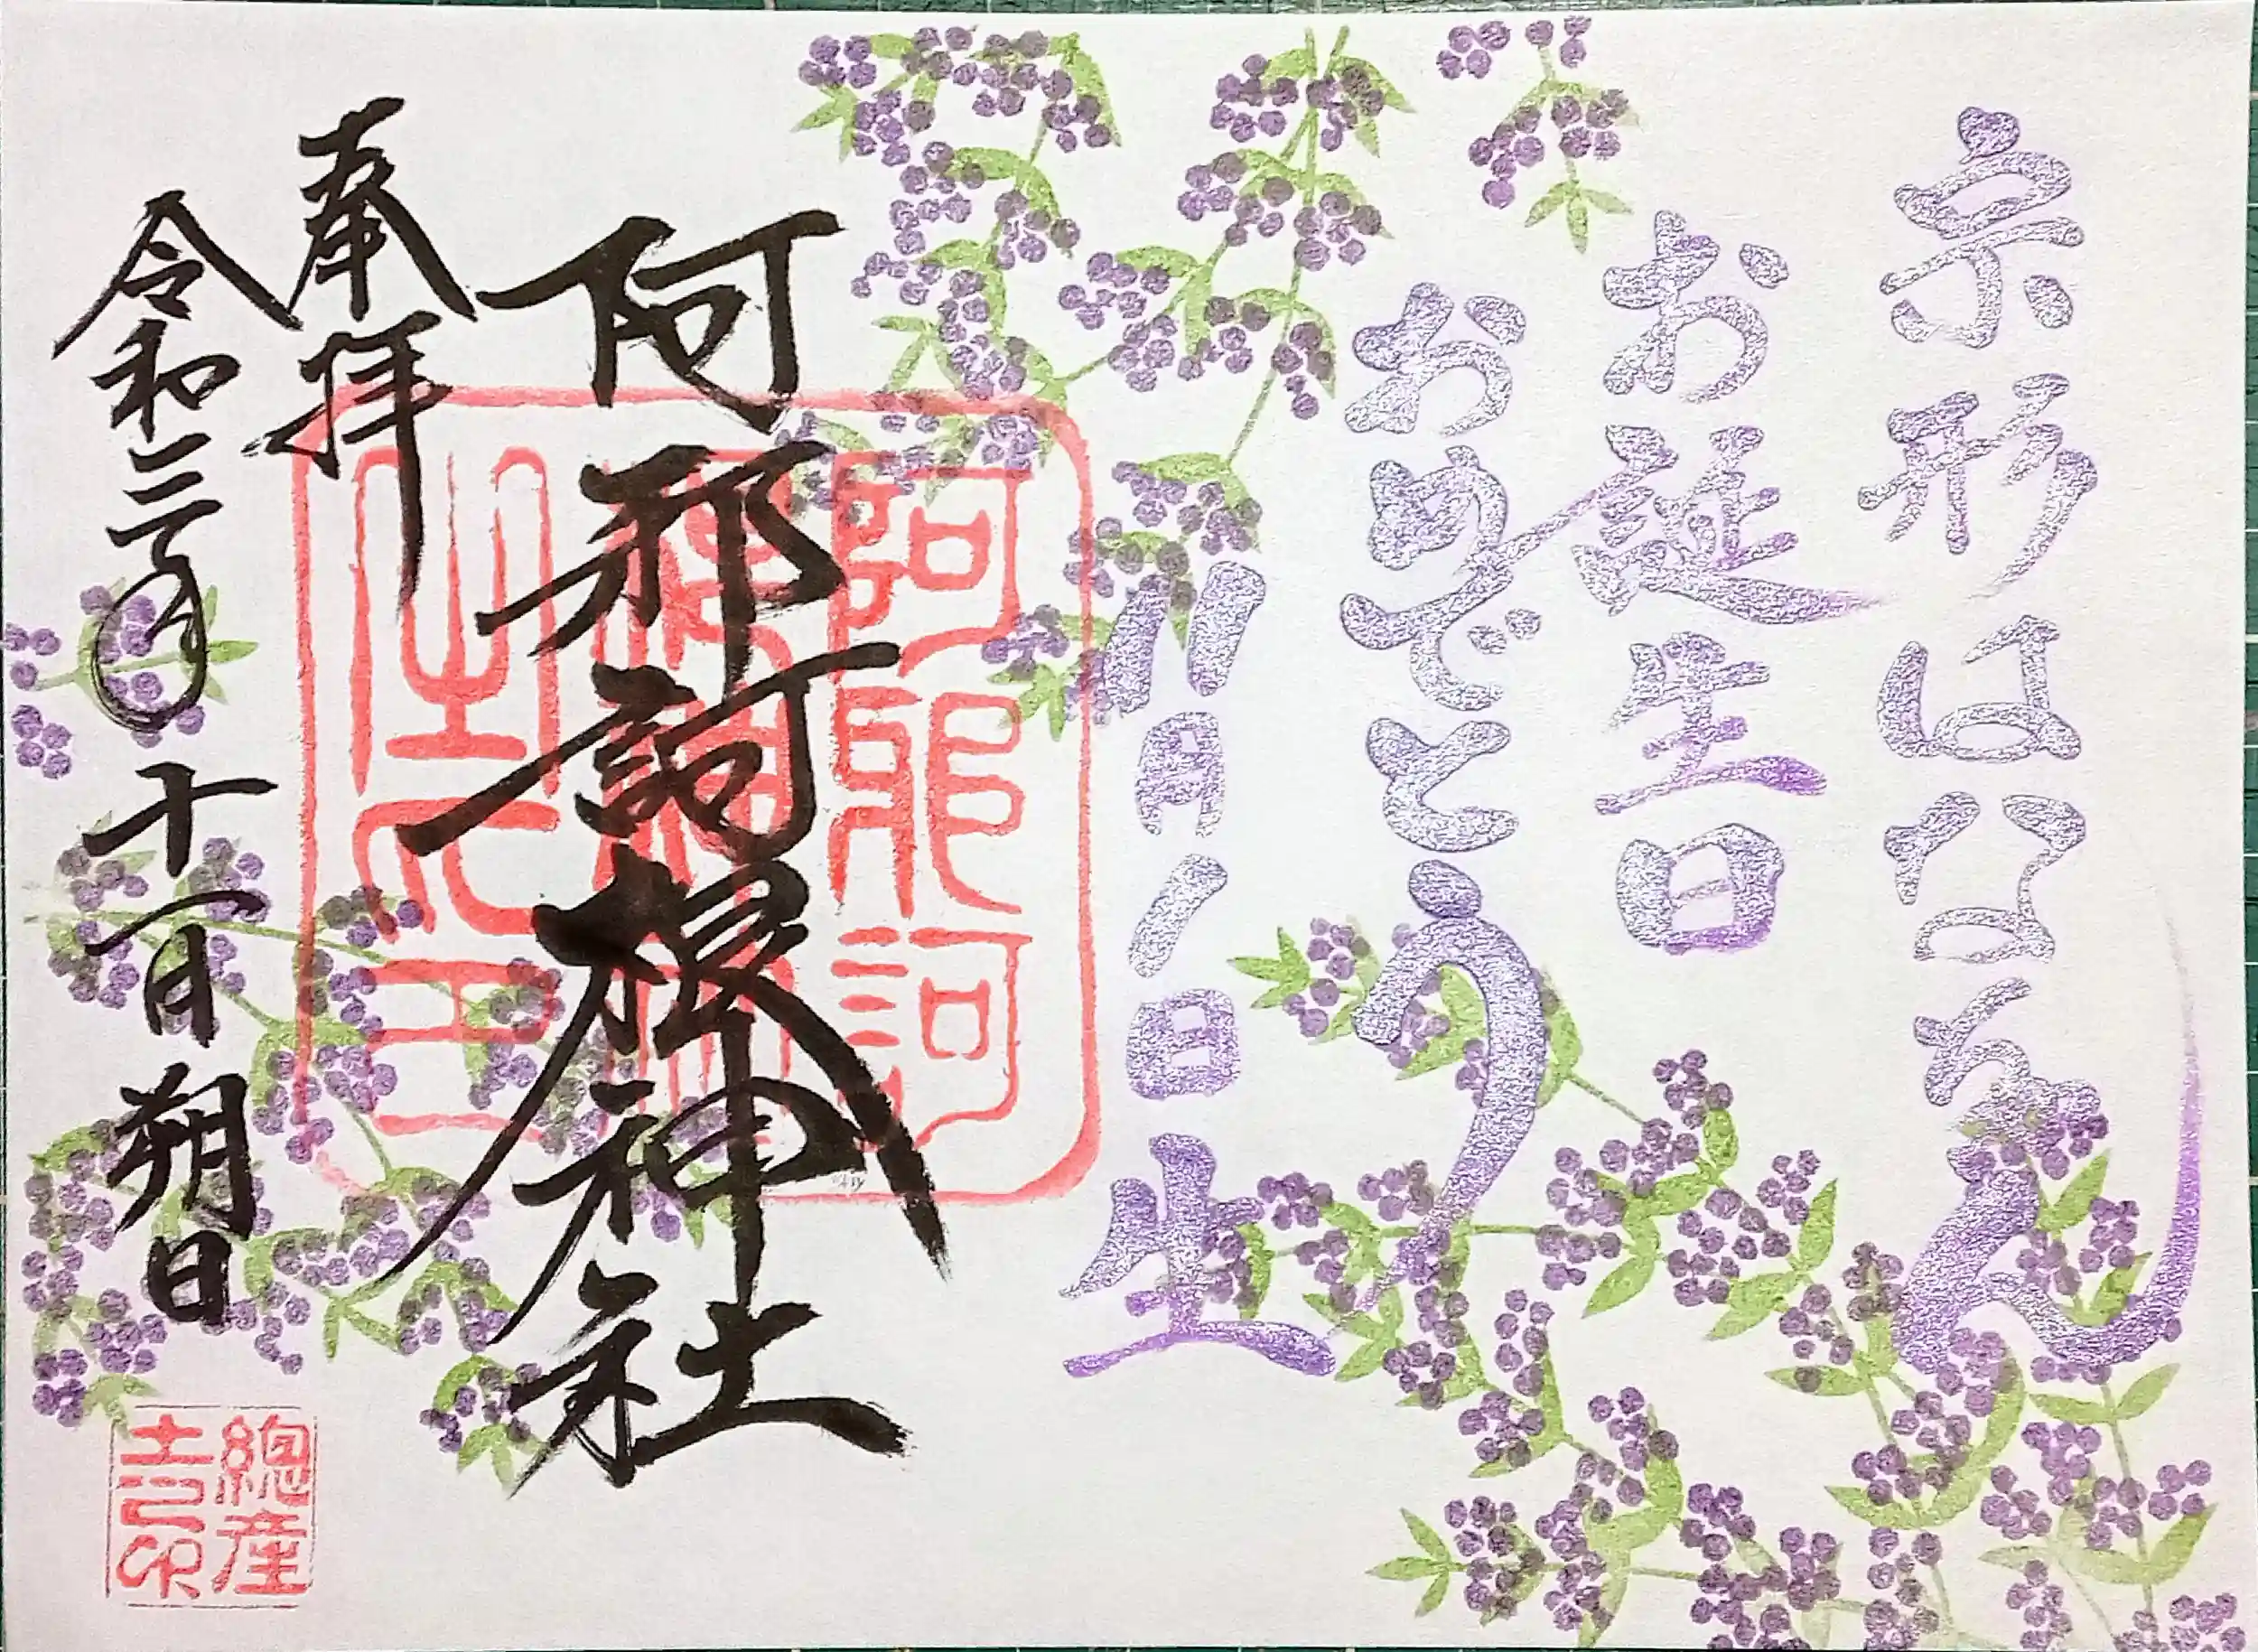 宗形はなちゃん
お誕生日
おめでとう
11月1日生
阿邪訶根神社
奉拝
令和三年十一月朔日
總産
土之印